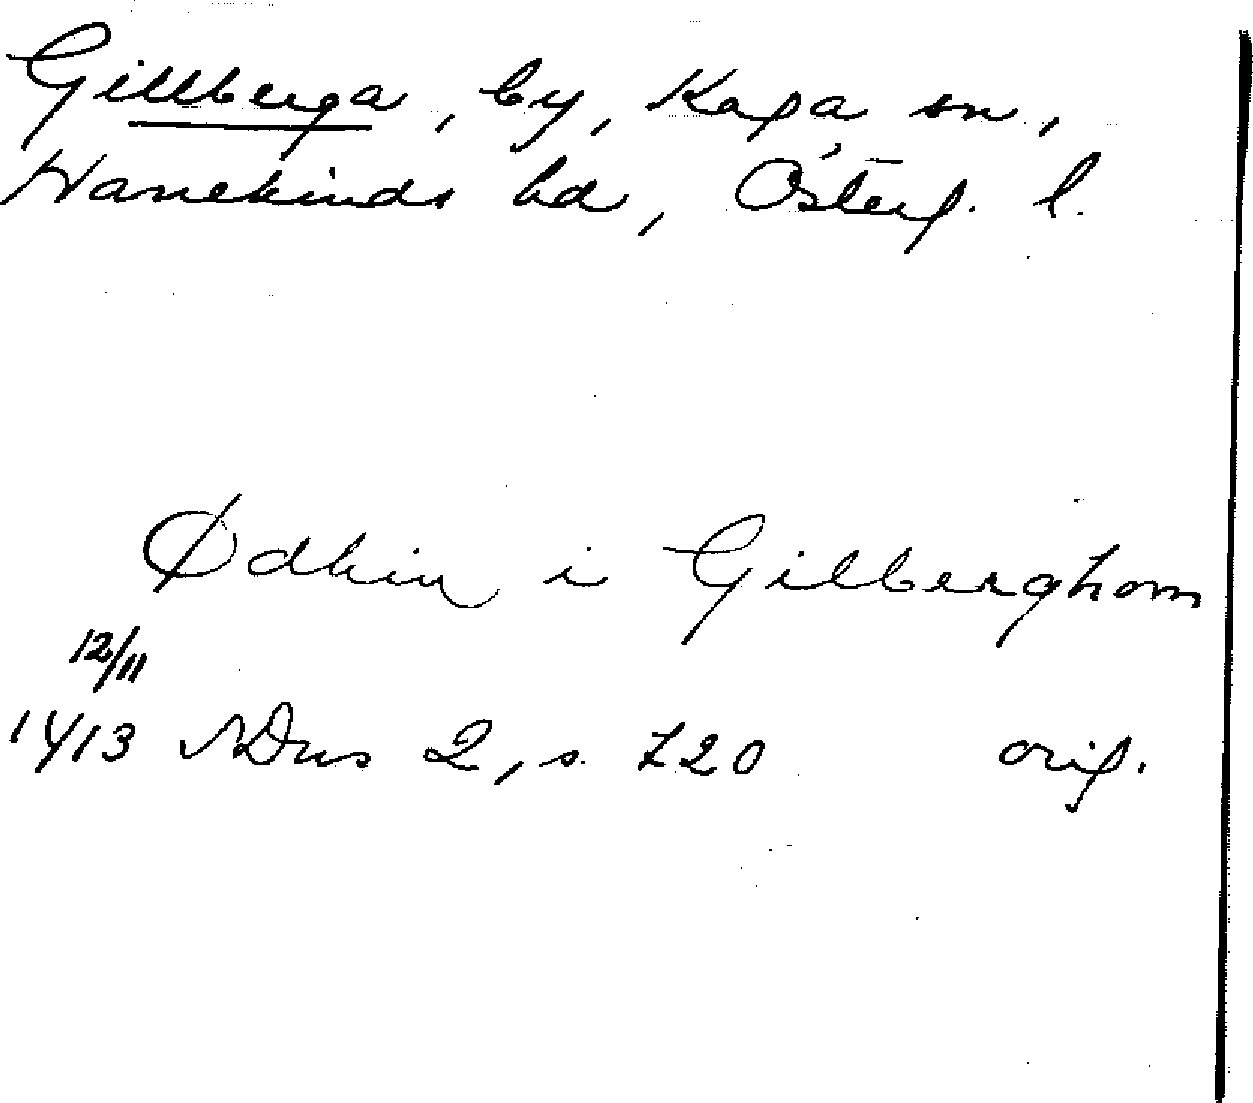 Gillberga, by, Kaga sn,
Hanekinds hd, Österg. l.
Ødhin i Gilberghom
12/11
1413 NDns 2, s. 720 orig.